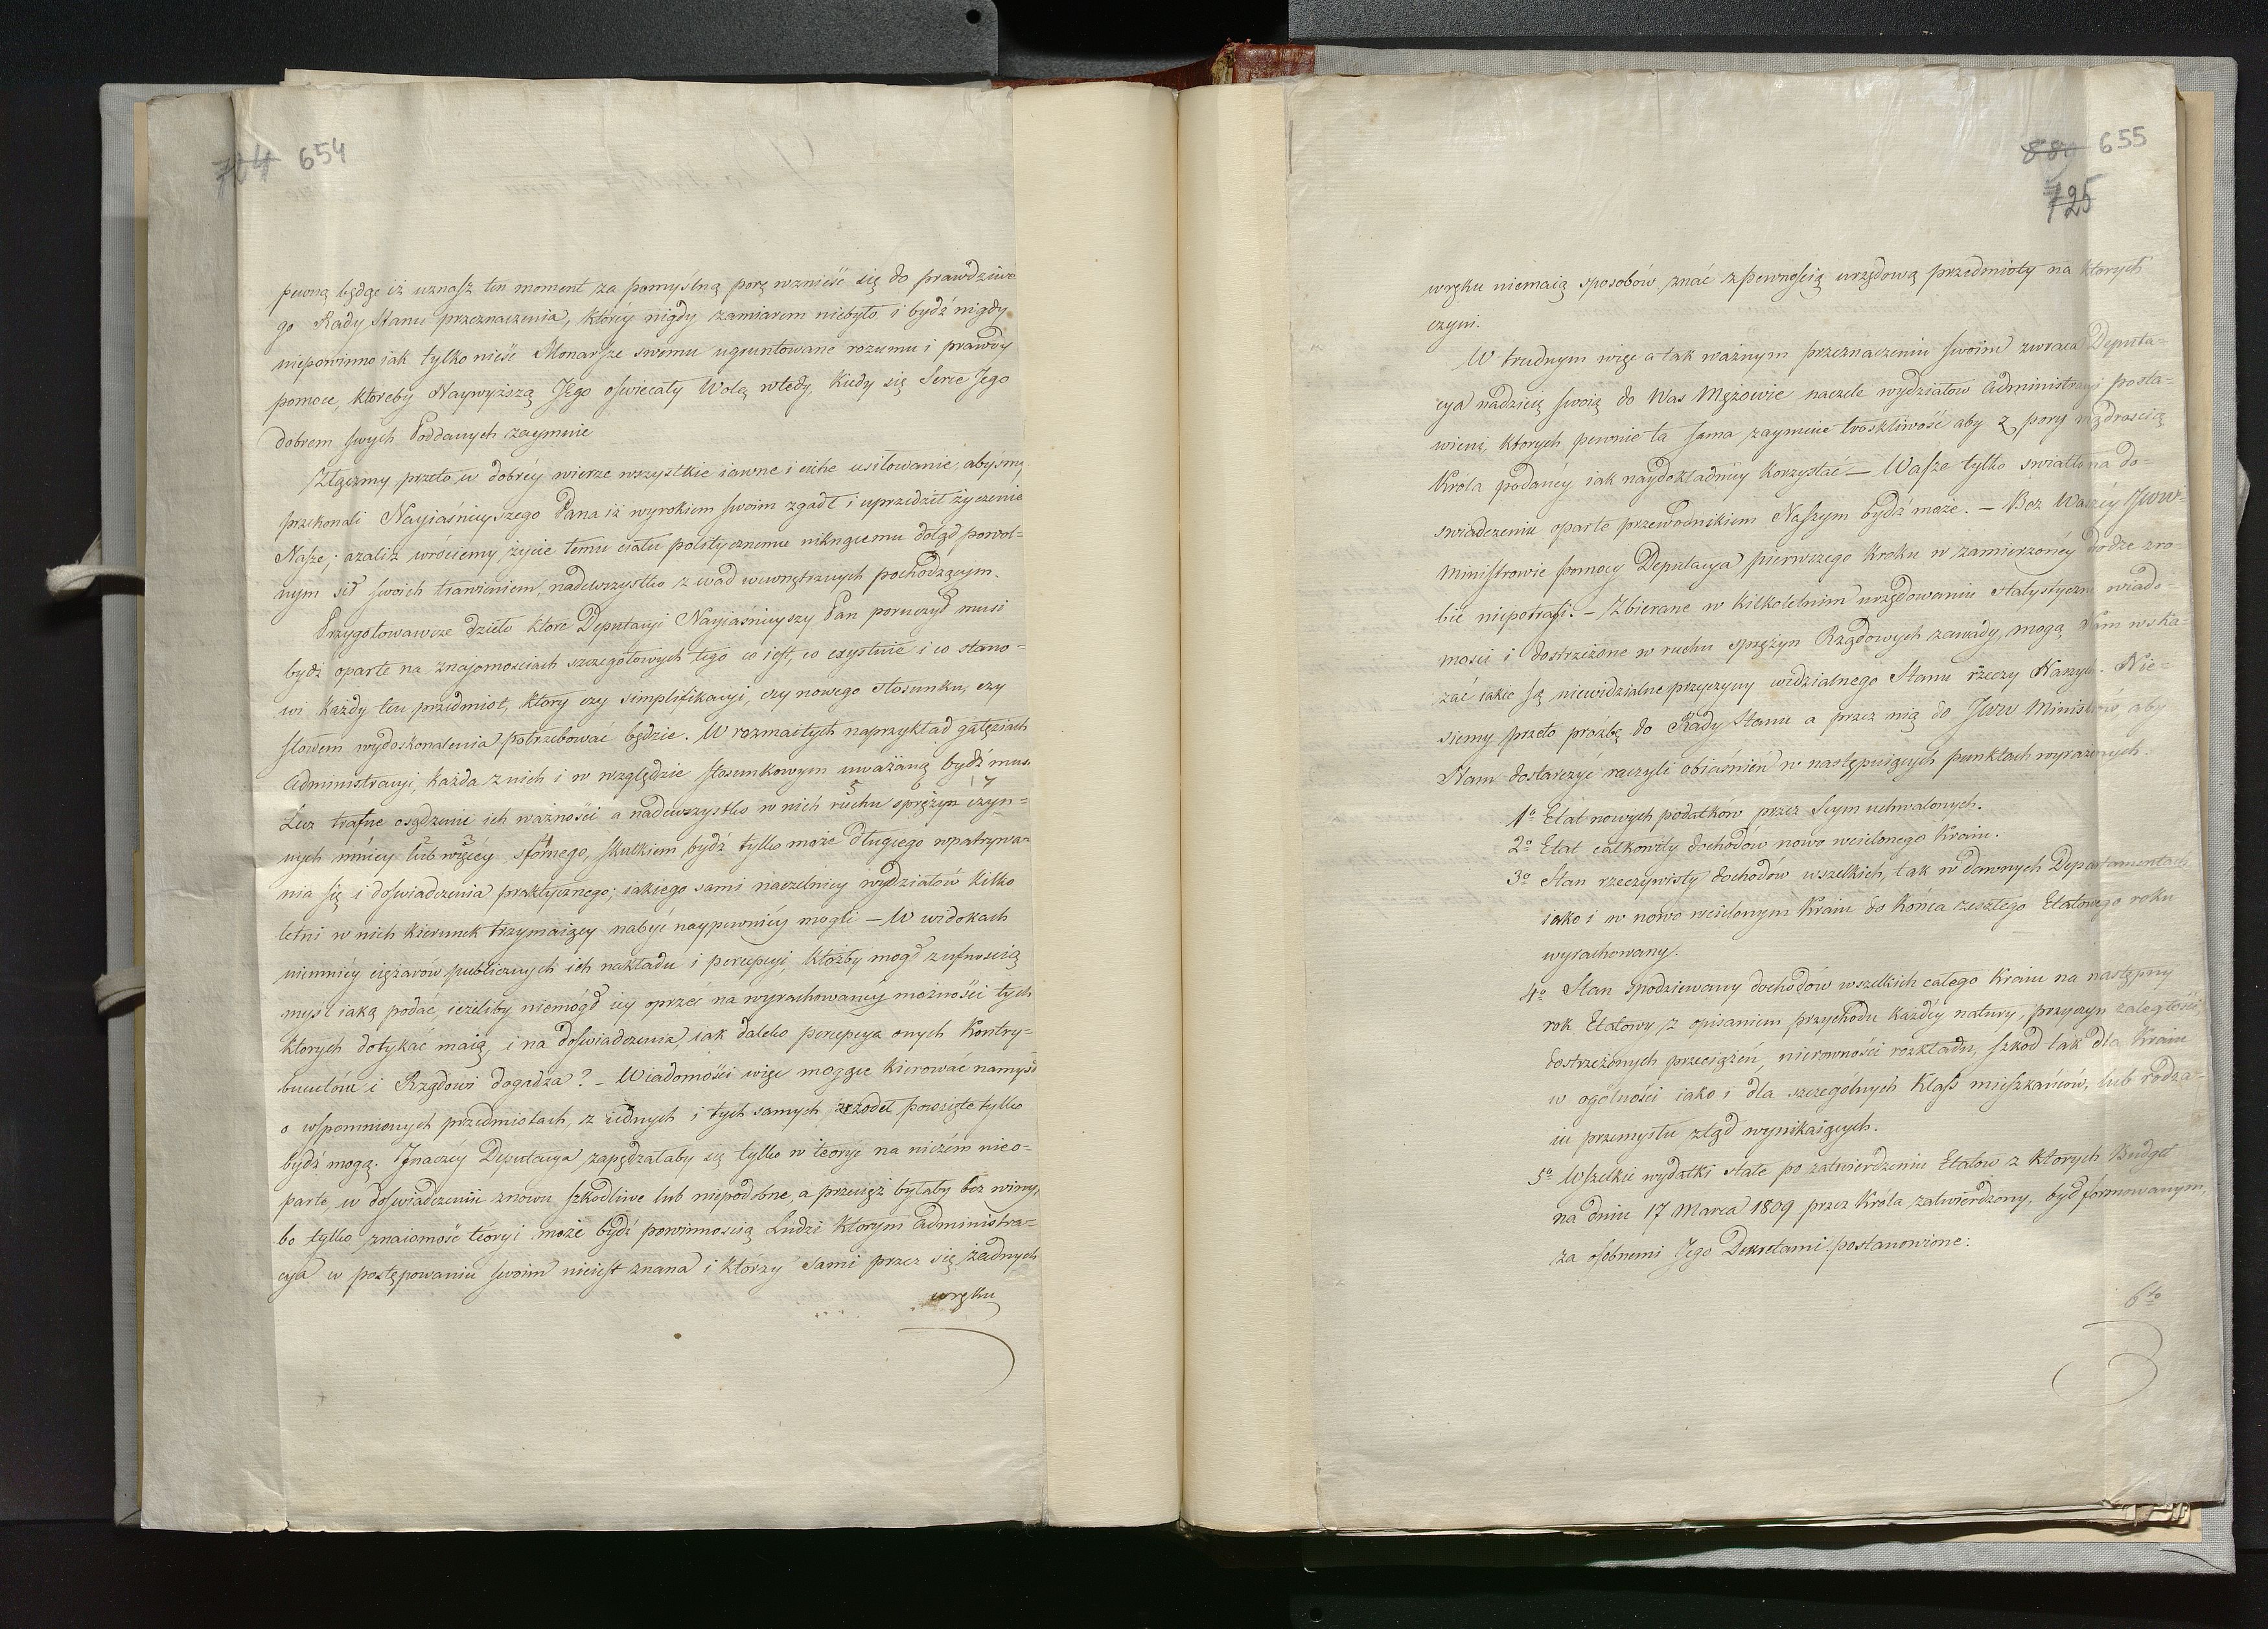 704 654
pewną będąc iż uznasz ten moment za pomyślną porę wznieść się do prawdziwe
go Rady Stanu przeznaczenia, którey nigdy zamiarem niebyło i bydź nigdy
niepowinno iak tylko nieść Monarsze swemu ugruntowane rozumu i prawdy
pomoce, któreby Naywyższą Jego oswiecały Wolą wtedy, kiedy się Serce Jego
dobrem swych Poddanych zaymuie
Złączmy przeto w dobréy wierze wszystkie iawne i ciche usiłowanie, abyśmy
przekonali Nayiaśnieyszego Pana iż wyrokiem swoim zgadł i uprzedził życzenie
Nasze; azaliż wróciemy życie temu ciału politycznemu niknącemu dotąd powol-
nym sił swoich trawieniem, nadewszystko z wad wewnętrznych pochodzącym.
Przygotowawcze dzieło ktore Deputacyi Nayiaśnieyszy Pan poruczył musi
bydź oparte na znajomosciach szczegółowych tego co iest, co exystuie i co stano-
wi każdy ten przedmiot, który czy simplifikacyi, czy nowego stosunku, czy
słowem wydoskonalenia potrzebować będzie. W rozmaitych naprzykład gałęziach
Administracyi, każda z nich i w względzie stosunkowym uważaną bydź musi
Lecz trafne osądzenie ich ważności a nadewszystko w nich ruchu sprężyn czyn=
nych mniey lub więcéy sfornego, skutkiem bydź tylko może długiego wpatrywa-
nia się i doswiadczenia praktycznego; iakiego sami naczelnicy wydziałów kilko
letni w nich kierunek trzymaiący nabyć naypewniéy mogli — W widokach
niemniéy ciężarów publicznych ich nakładu i percepcyi, któżby mógł z ufnoscią
mysl iaką podać, ieżeliby niemógł iéy oprzeć na wyrachowanéy możności tych
ktorych dotykać maią, i na doswiadczenia iak daleko percepcya onych Kontry-
buentów i Rządowi dogadza? — Wiadomości więc mogące kierować namysł
o wspomnionych przedmiotach, z iednych i tych samych zrzodeł powzięte tylko
bydź mogą. Jnaczéy Deputacya zapędzałaby się tylko w teorye na niczém nieo-
parte, w doswiadczeniu znowu szkodliwe lub niepodobne, a przecięż byłaby bez winy,
bo tylko znaiomość teoryi może bydź powinnoscią Ludzi którym Administra-
cya w postępowaniu swoim nieiest znana i którzy sami przez się żadnych
wręku
880 655
725
wręku niemaią sposobów, znać z pewnością urzędową przedmioty na ktorych
czyni.
W trudnym więc a tak ważnym przeznaczeniu swoim zwraca Deputa-
cya nadzieię swoią do Was Mężowie naczele wydziałów Administracyi posta-
wieni, ktorych pewnie ta sama zaymuie troskliwość aby z pory mądroscią
Króla podanéy iak naydokładniéy korzystać — Wasze tylko swiatło na do-
swiadczeniu oparte przewodnikiem Naszym bydź może. — Bez Waszéy JWW
Ministrowie pomocy Deputacya pierwszego kroku w zamierzonéy drodze zro-
bić niepotrafi. — Zbierane w kilkoletnim urzędowaniu statystyczne wiado-
mosci i dostrzeżone w ruchu sprężyn Rządowych zawady, mogą Nam wska-
zać iakie są niewidzialne przyczyny widzialnego Stanu rzeczy Naszych. Nie-
siemy przeto prożbę do Rady Stanu a przez nią do JWW Ministrów aby
Nam dostarczyć raczyli obiaśnień w następuiących punktach wyrażonych:
1o Etat nowych podatków przez Seym uchwalonych.
2o Etat całkowity dochodów nowo wcielonego Kraiu.
3o Stan rzeczywisty dochodów wszelkich, tak w dawnych Departamentach
iako i w nowo wcielonym Kraiu do końca zeszłego Etatowego roku
wyrachowany.
4o Stan spodziewany dochodów wszelkich całego Kraiu na następny
rok Etatowy z opisaniem przychodu każdéy natury, przyczyn zaległości,
dostrzeżonych przeciążeń, nierowności rozkładu, szkod tak dla Kraiu
w ogólności iako i dla szczególnych Klass mieszkańców, lub rodza-
iu przemysłu ztąd wynikaiących.
5o Wszelkie wydatki stałe po zatwierdzeniu Etatow z ktorych Budget
na dniu 17 Marca 1809 przez Króla zatwierdzony, był formowanym,
za osobnemi Jego Dekretami postanowione.
6to